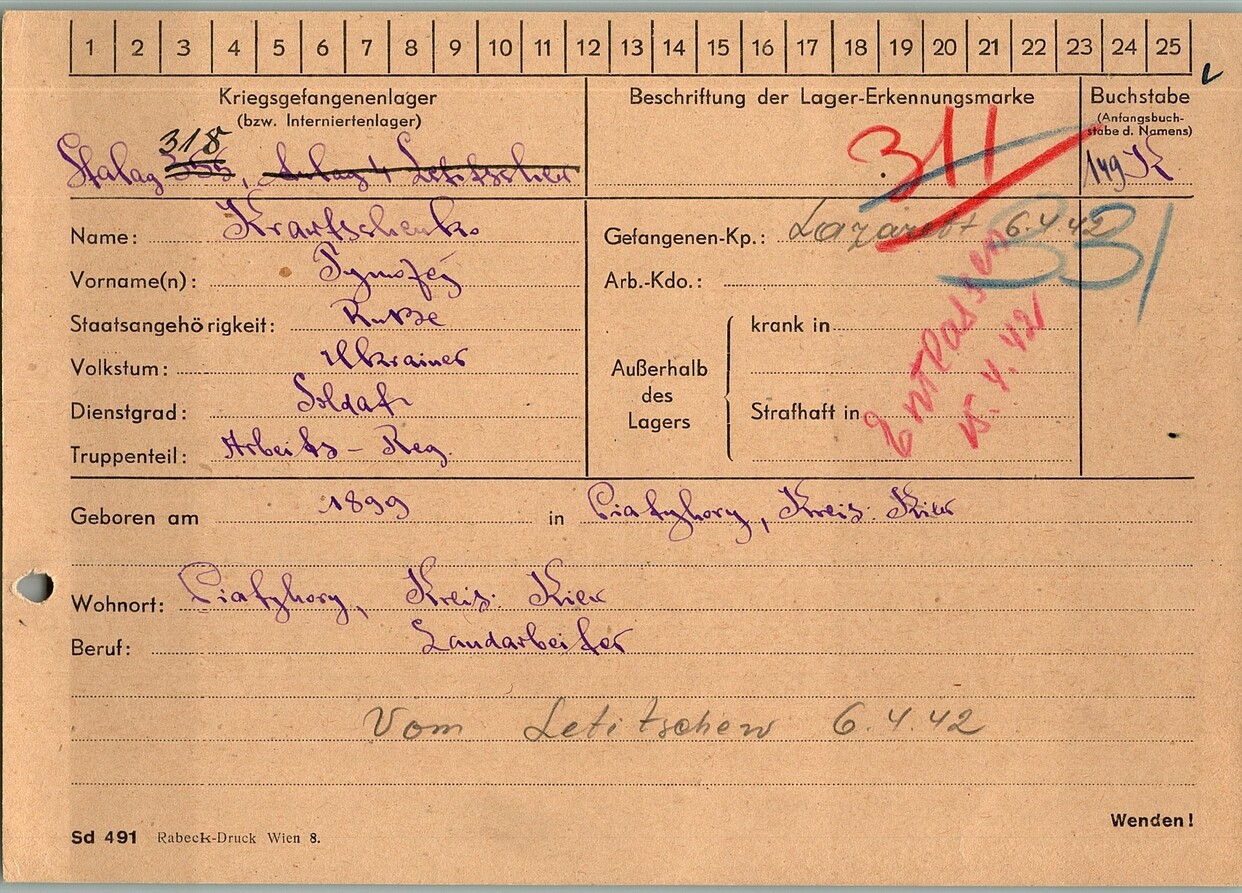 1 2 3 4 5 6 7 8 9 10 11 12 13 14 15 16 17 18 19 20 21 22 23 24 25
Kriegsgefangenenlager
(bzw. Interniertenlager)
318
Stalag 355, Letitschew
Beschriftung der Lager-Erkennungsmarke
311
Buchstabe
(Anfangsbuch-
stabe d. Namens)
149 K
331
Name: Krawtschenko
Vorname(n): Tymofej
Staatsangehörigkeit: Russe
Volkstum: Ukrainer
Dienstgrad: Soldat
Truppenteil: Arbeits - Reg.
Gefangenen-Kp.: Lazarett 6.4.42
Arb.-Kdo.:
Außerhalb
des
Lagers
krank in
Strafhaft in
Entlassen
15.4.42
Geboren am 1899 in Piatyhory, Kreis: Kiew
Wohnort: Piatyhory, Kreis: Kiew
Beruf: Landarbeiter
Vom Letitschew 6.4.42
Wenden!
Sd 491 Rabeck-Druck Wien 8.